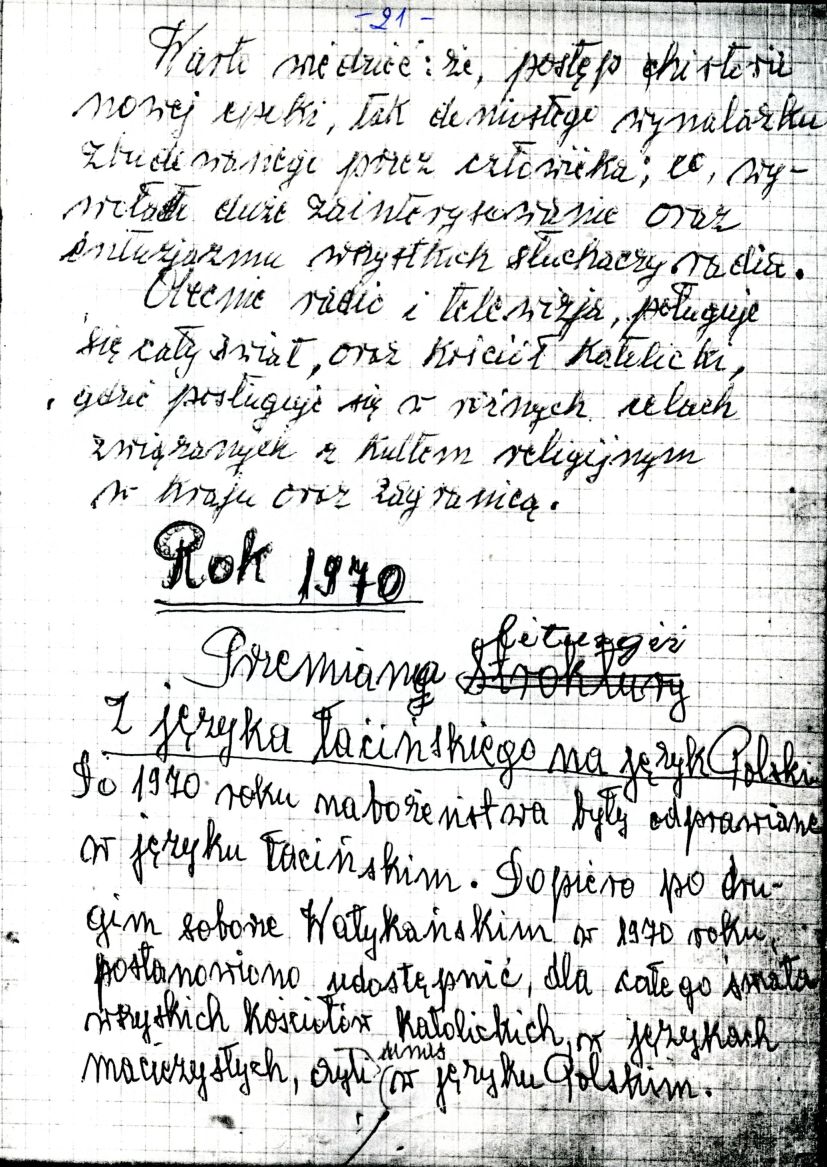 - 21 -
Warto wiedzieć: że, postęp chistorii
nowej epoki, tak doniosłego wynalazku
zbudowanego przez człowieka; co, wy-
wołało duże zainterysowanie oraz
entuzjazmu wszystkich słuchaczy radia.
Obecnie radio i telewizja, posługuje
się cały świat, oraz Kościół Katolicki,
gdzie posługuje się w różnych celach
związanych z Kultem religijnym
w Kraju oraz zagranicą.
Rok 1970
liturgii
Przemiana Stroktury
Z języka łacińskiego na język Polski
Do 1970 roku nabożeństwa były odprawiane
w języku łacińskim. Dopiero po dru-
gim soborze Watykańskim w 1970 roku,
postanowiono udostępnić, dla całego świata
wszyskich Kościołów Katolickich, w językach
unas
macieżystych, czyli w języku Polskim.